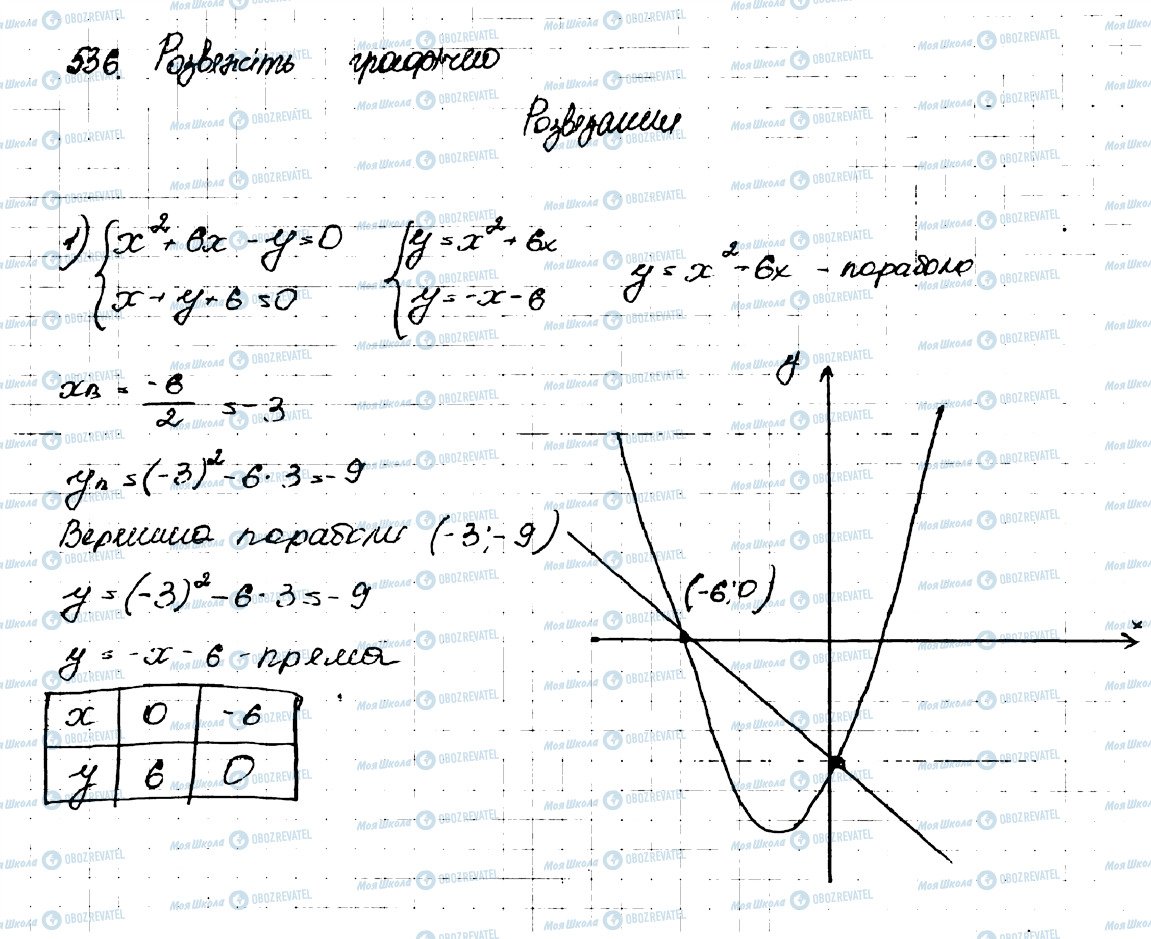 536. Розвяжіть графічно
Розвязання
1) { x² + 6x - y = 0 { y = x² + 6x y = x² - 6x - парабола
x + y + 6 = 0 y = -x - 6
xв = -6/2 = -3
yв = (-3)² - 6 · 3 = -9
Вершина параболи (-3; -9)
y = (-3)² - 6 · 3 = -9
y = -x - 6 - пряма
x 0 -6
y 6 0
y
(-6; 0)
x
МояШкола OBOZREVATEL